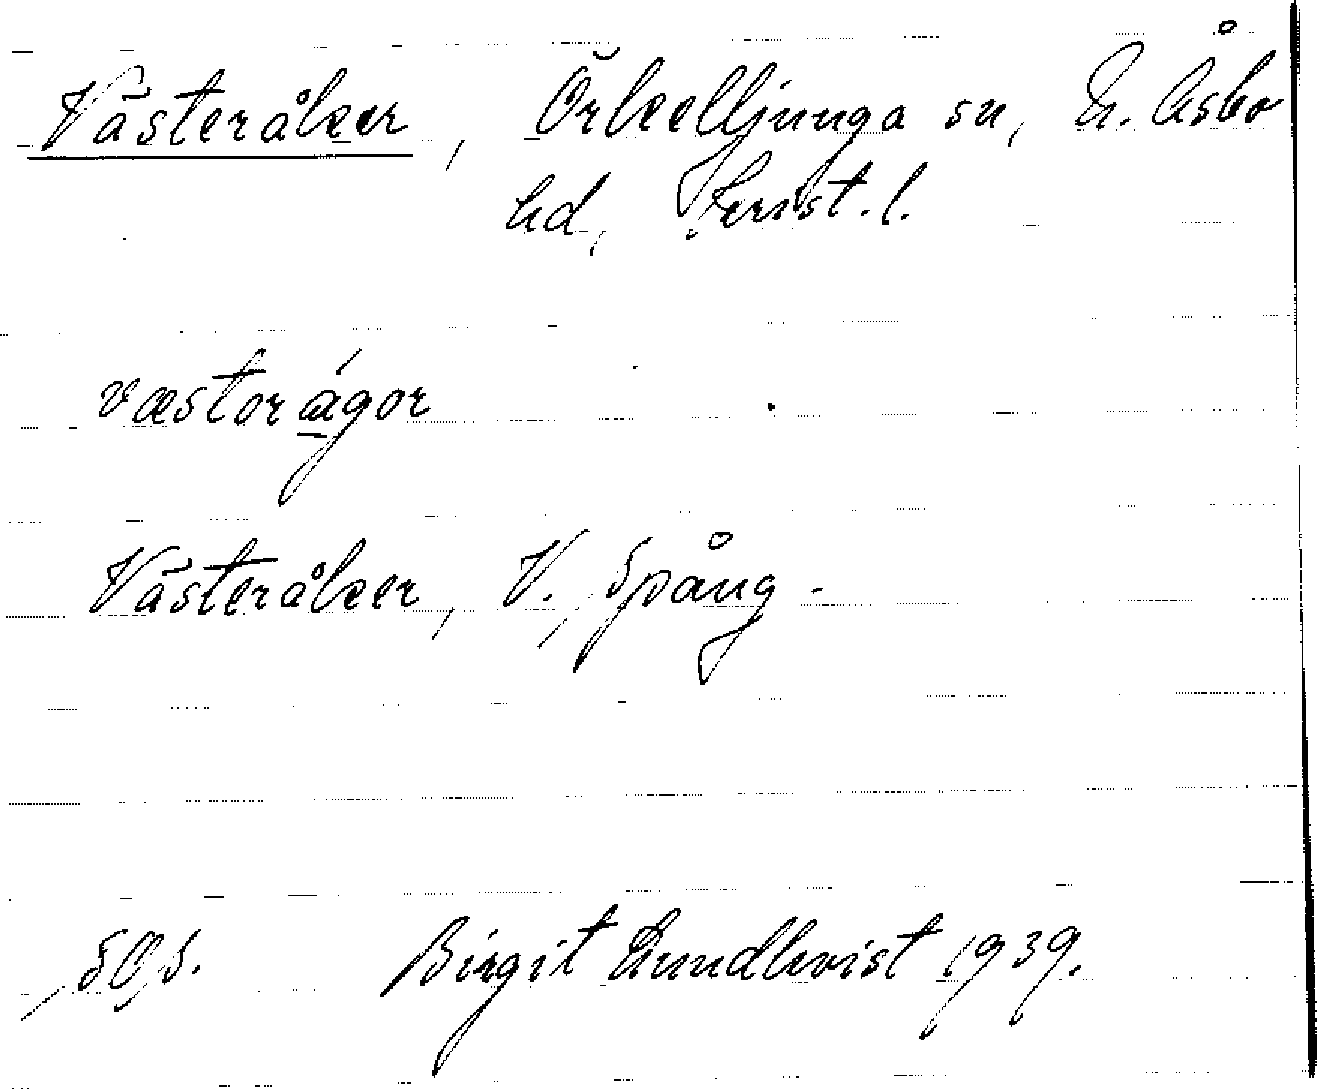 Västeråker, Örkelljunga sn, N. Åsbo
hd, Krist. l.
væstorågor
Västeråker, V. Spång -
SOS. Birgit Lundkvist 1939.